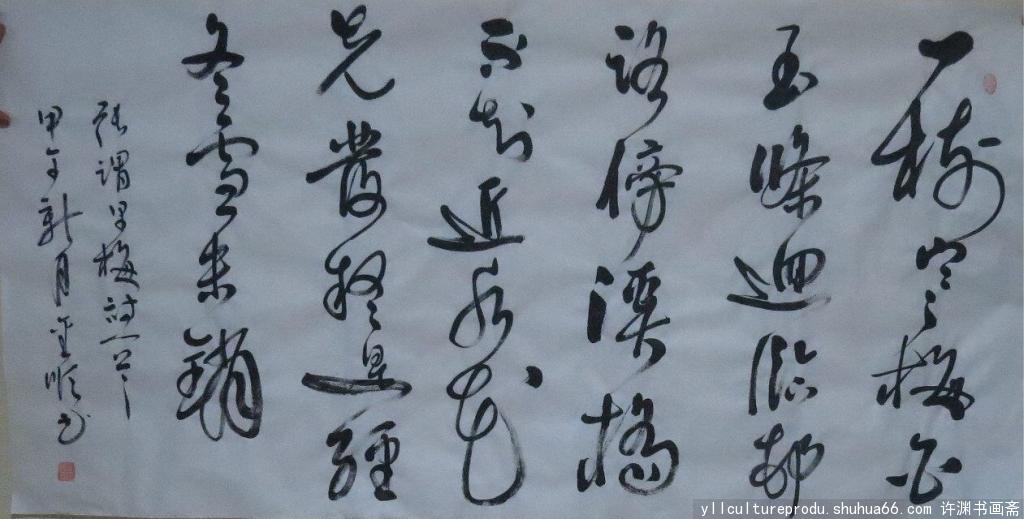 一树寒梅白
玉條迴临邨
路傍溪橋
不知近水花
先發疑是經
冬雪未銷
張謂早梅詩一首
甲午新月金順书
yllcultureprodu.shuhua66.com 许渊书画斋